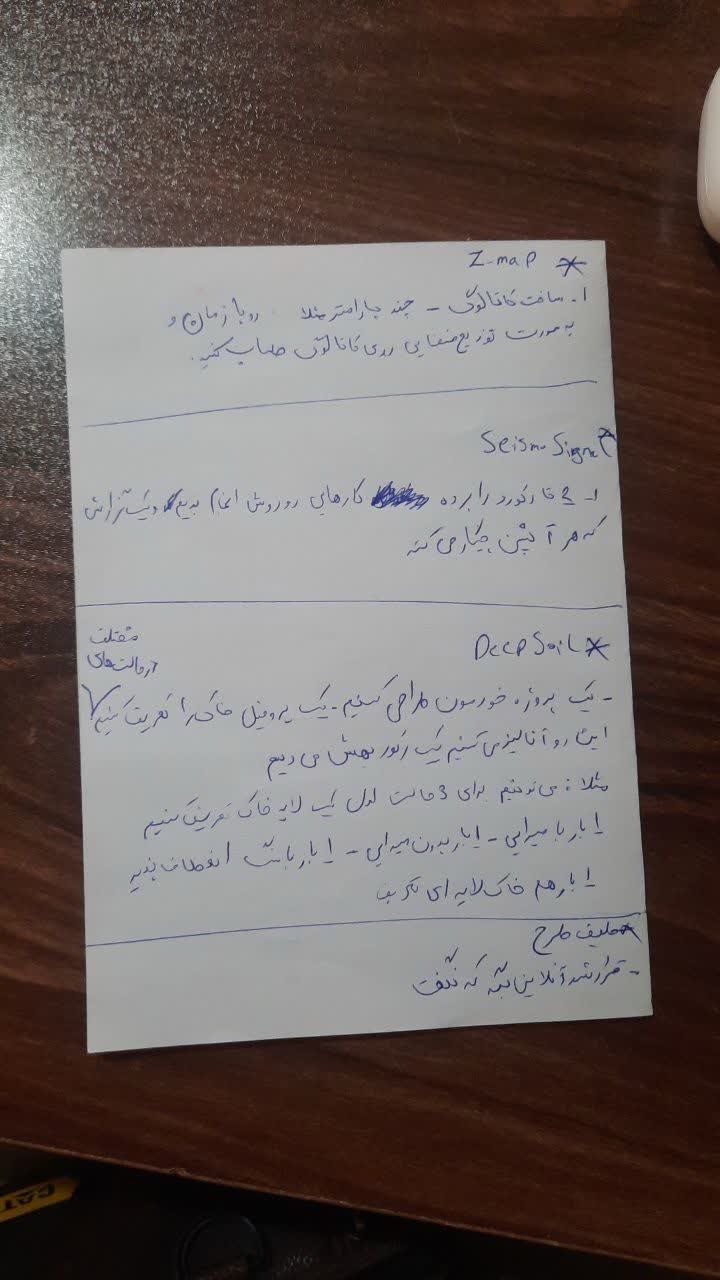 * Z-map
۱- ساخت کاتالوگ - چند پارامتر مثلا رو با زمان و
به صورت توزیع فضایی روی کاتالوگ حساب کنید.
Seismo Signal
۱- ۲ تا رکورد را برده کارهایی رو روش انجام بدیم و یک گزارش
که هر آپشن چیکار می کنه
* Deep Soil
در حالت های مختلف
- یک پروژه خودمون طراحی کنیم - یک پروفیل خاک را تعریف کنیم
این رو آنالیز می کنیم یک رکورد بهش می دیم
مثلا: می توانیم برای 3 حالت اول یک لایه خاک تعریف کنیم
۱ بار با میرایی - ۱ بار بدون میرایی - ۱ بار با سنگ انعطاف پذیر
۱ بار هم خاک لایه ای تعریف
* طیف طرح
- قرار شد آنلاین بگه که نگفت
CAT